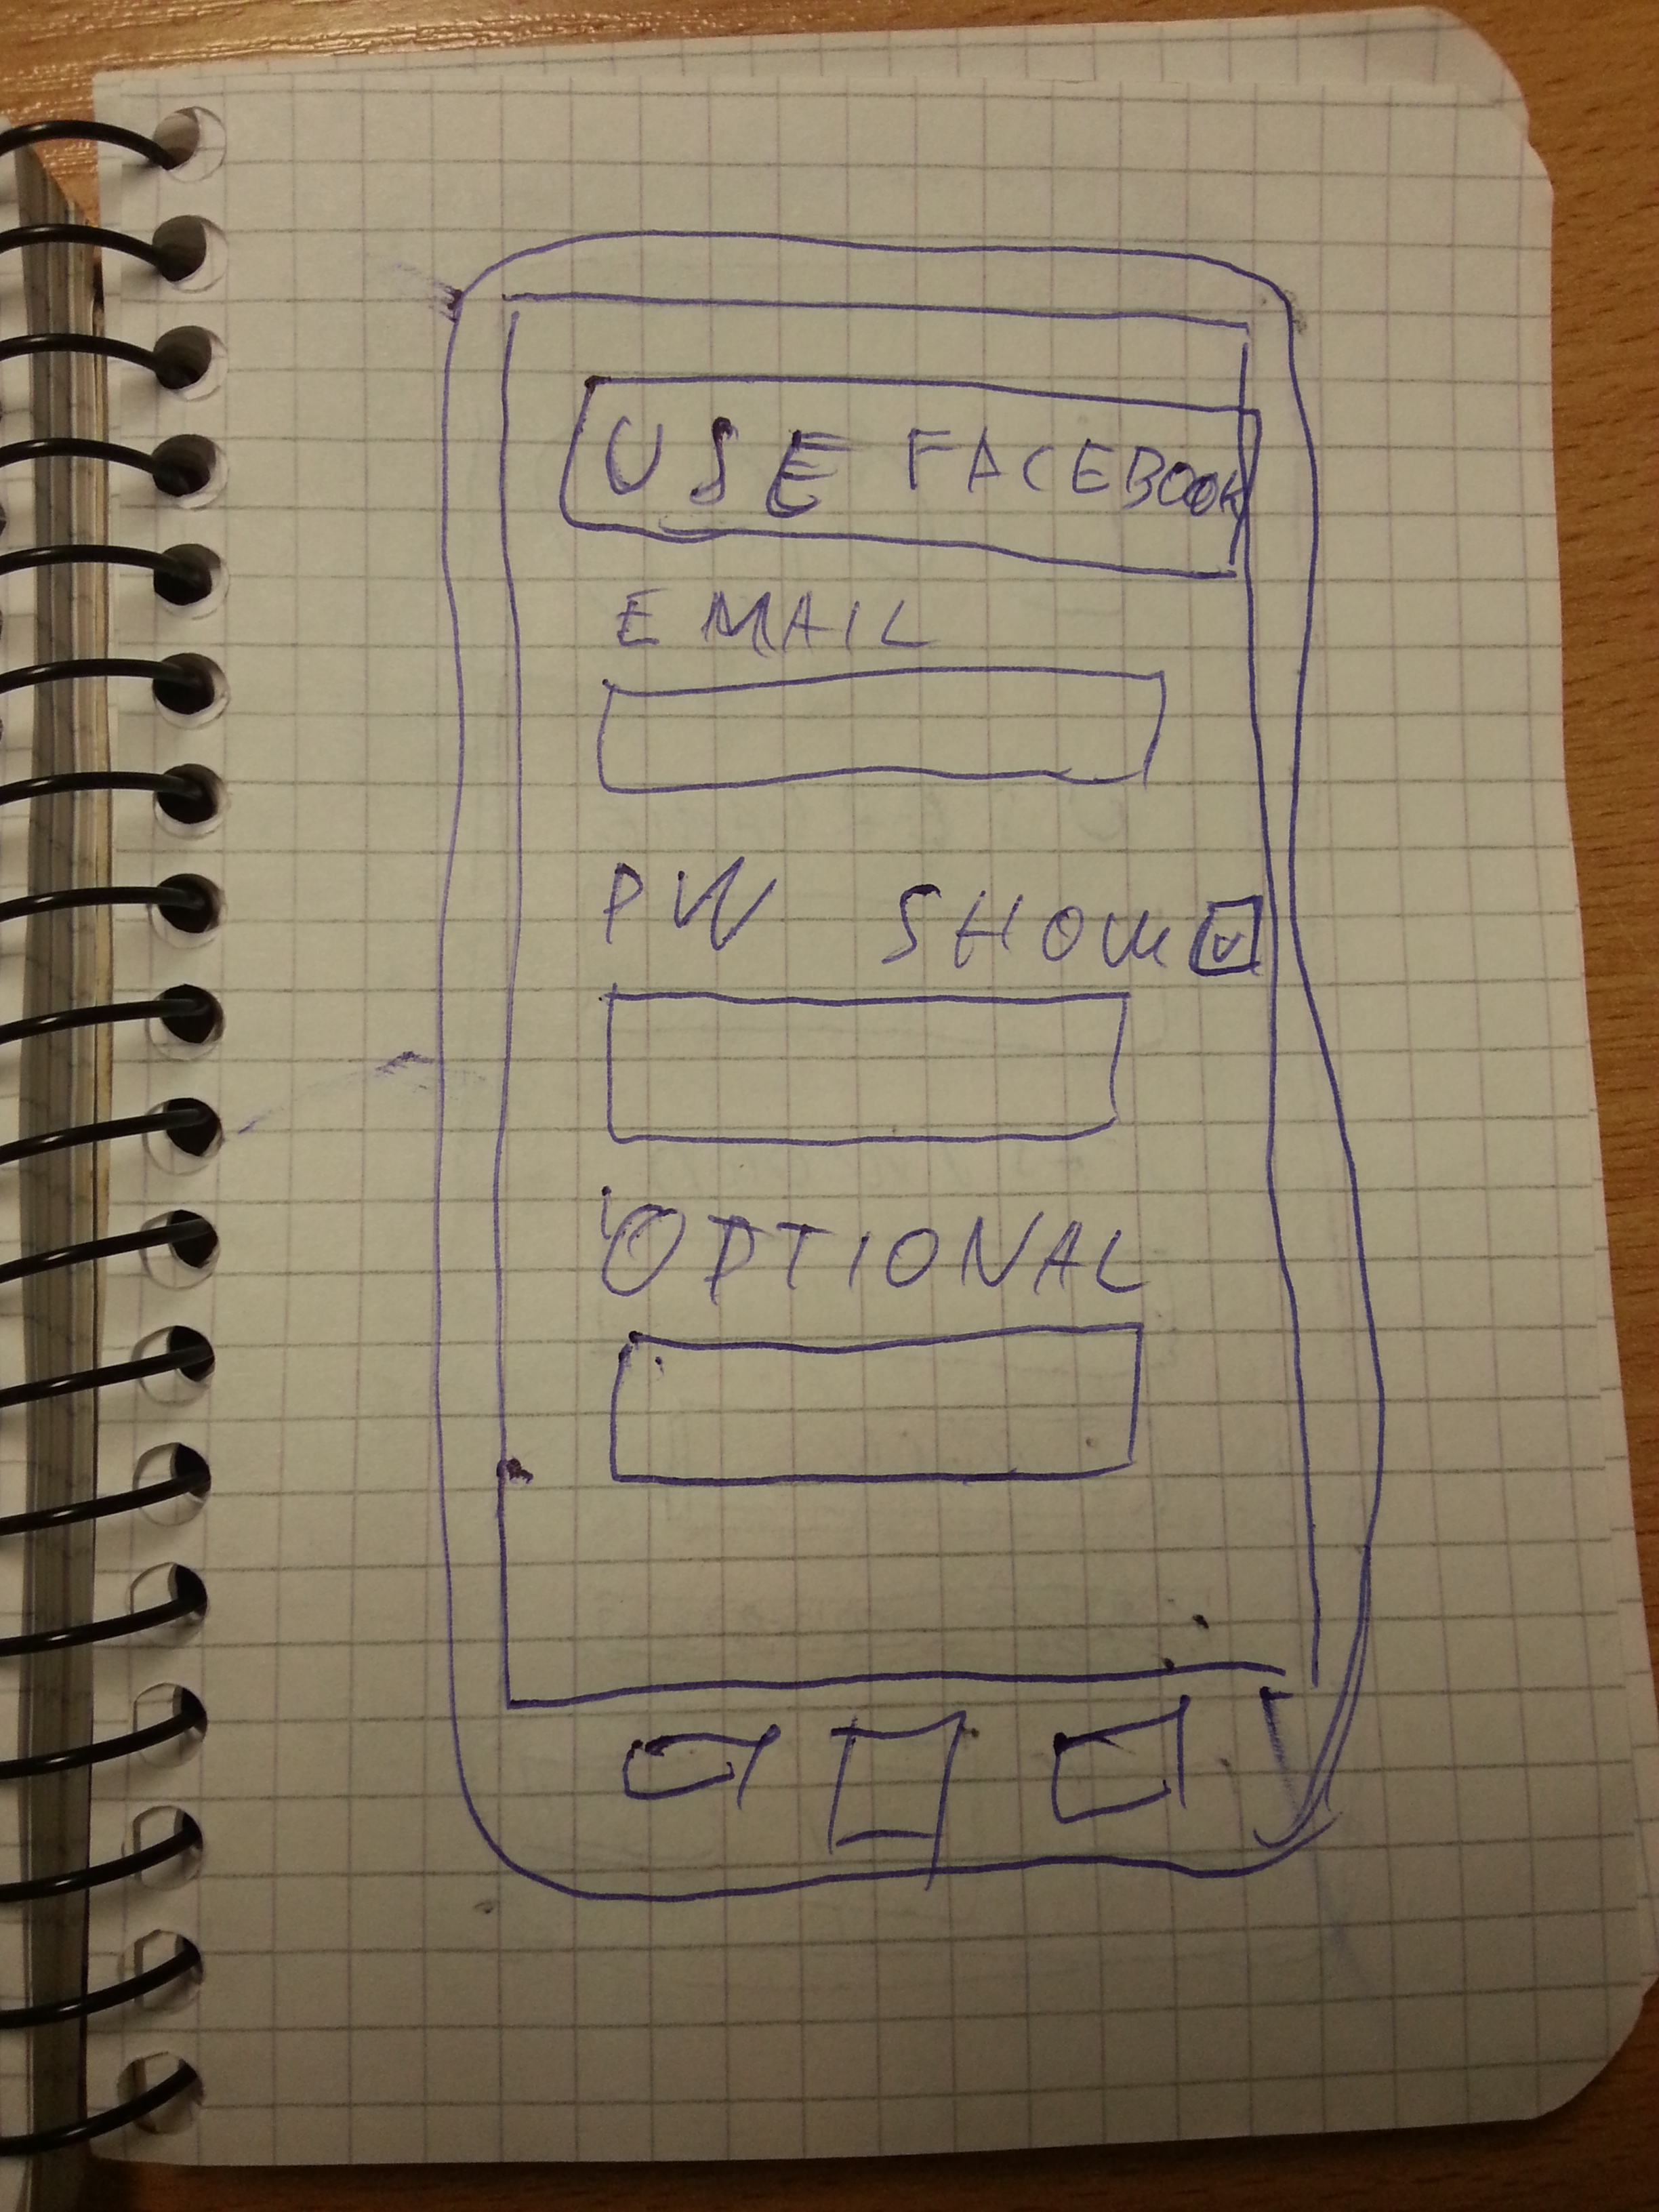 USE FACEBOOK
EMAIL
PW SHOW
OPTIONAL